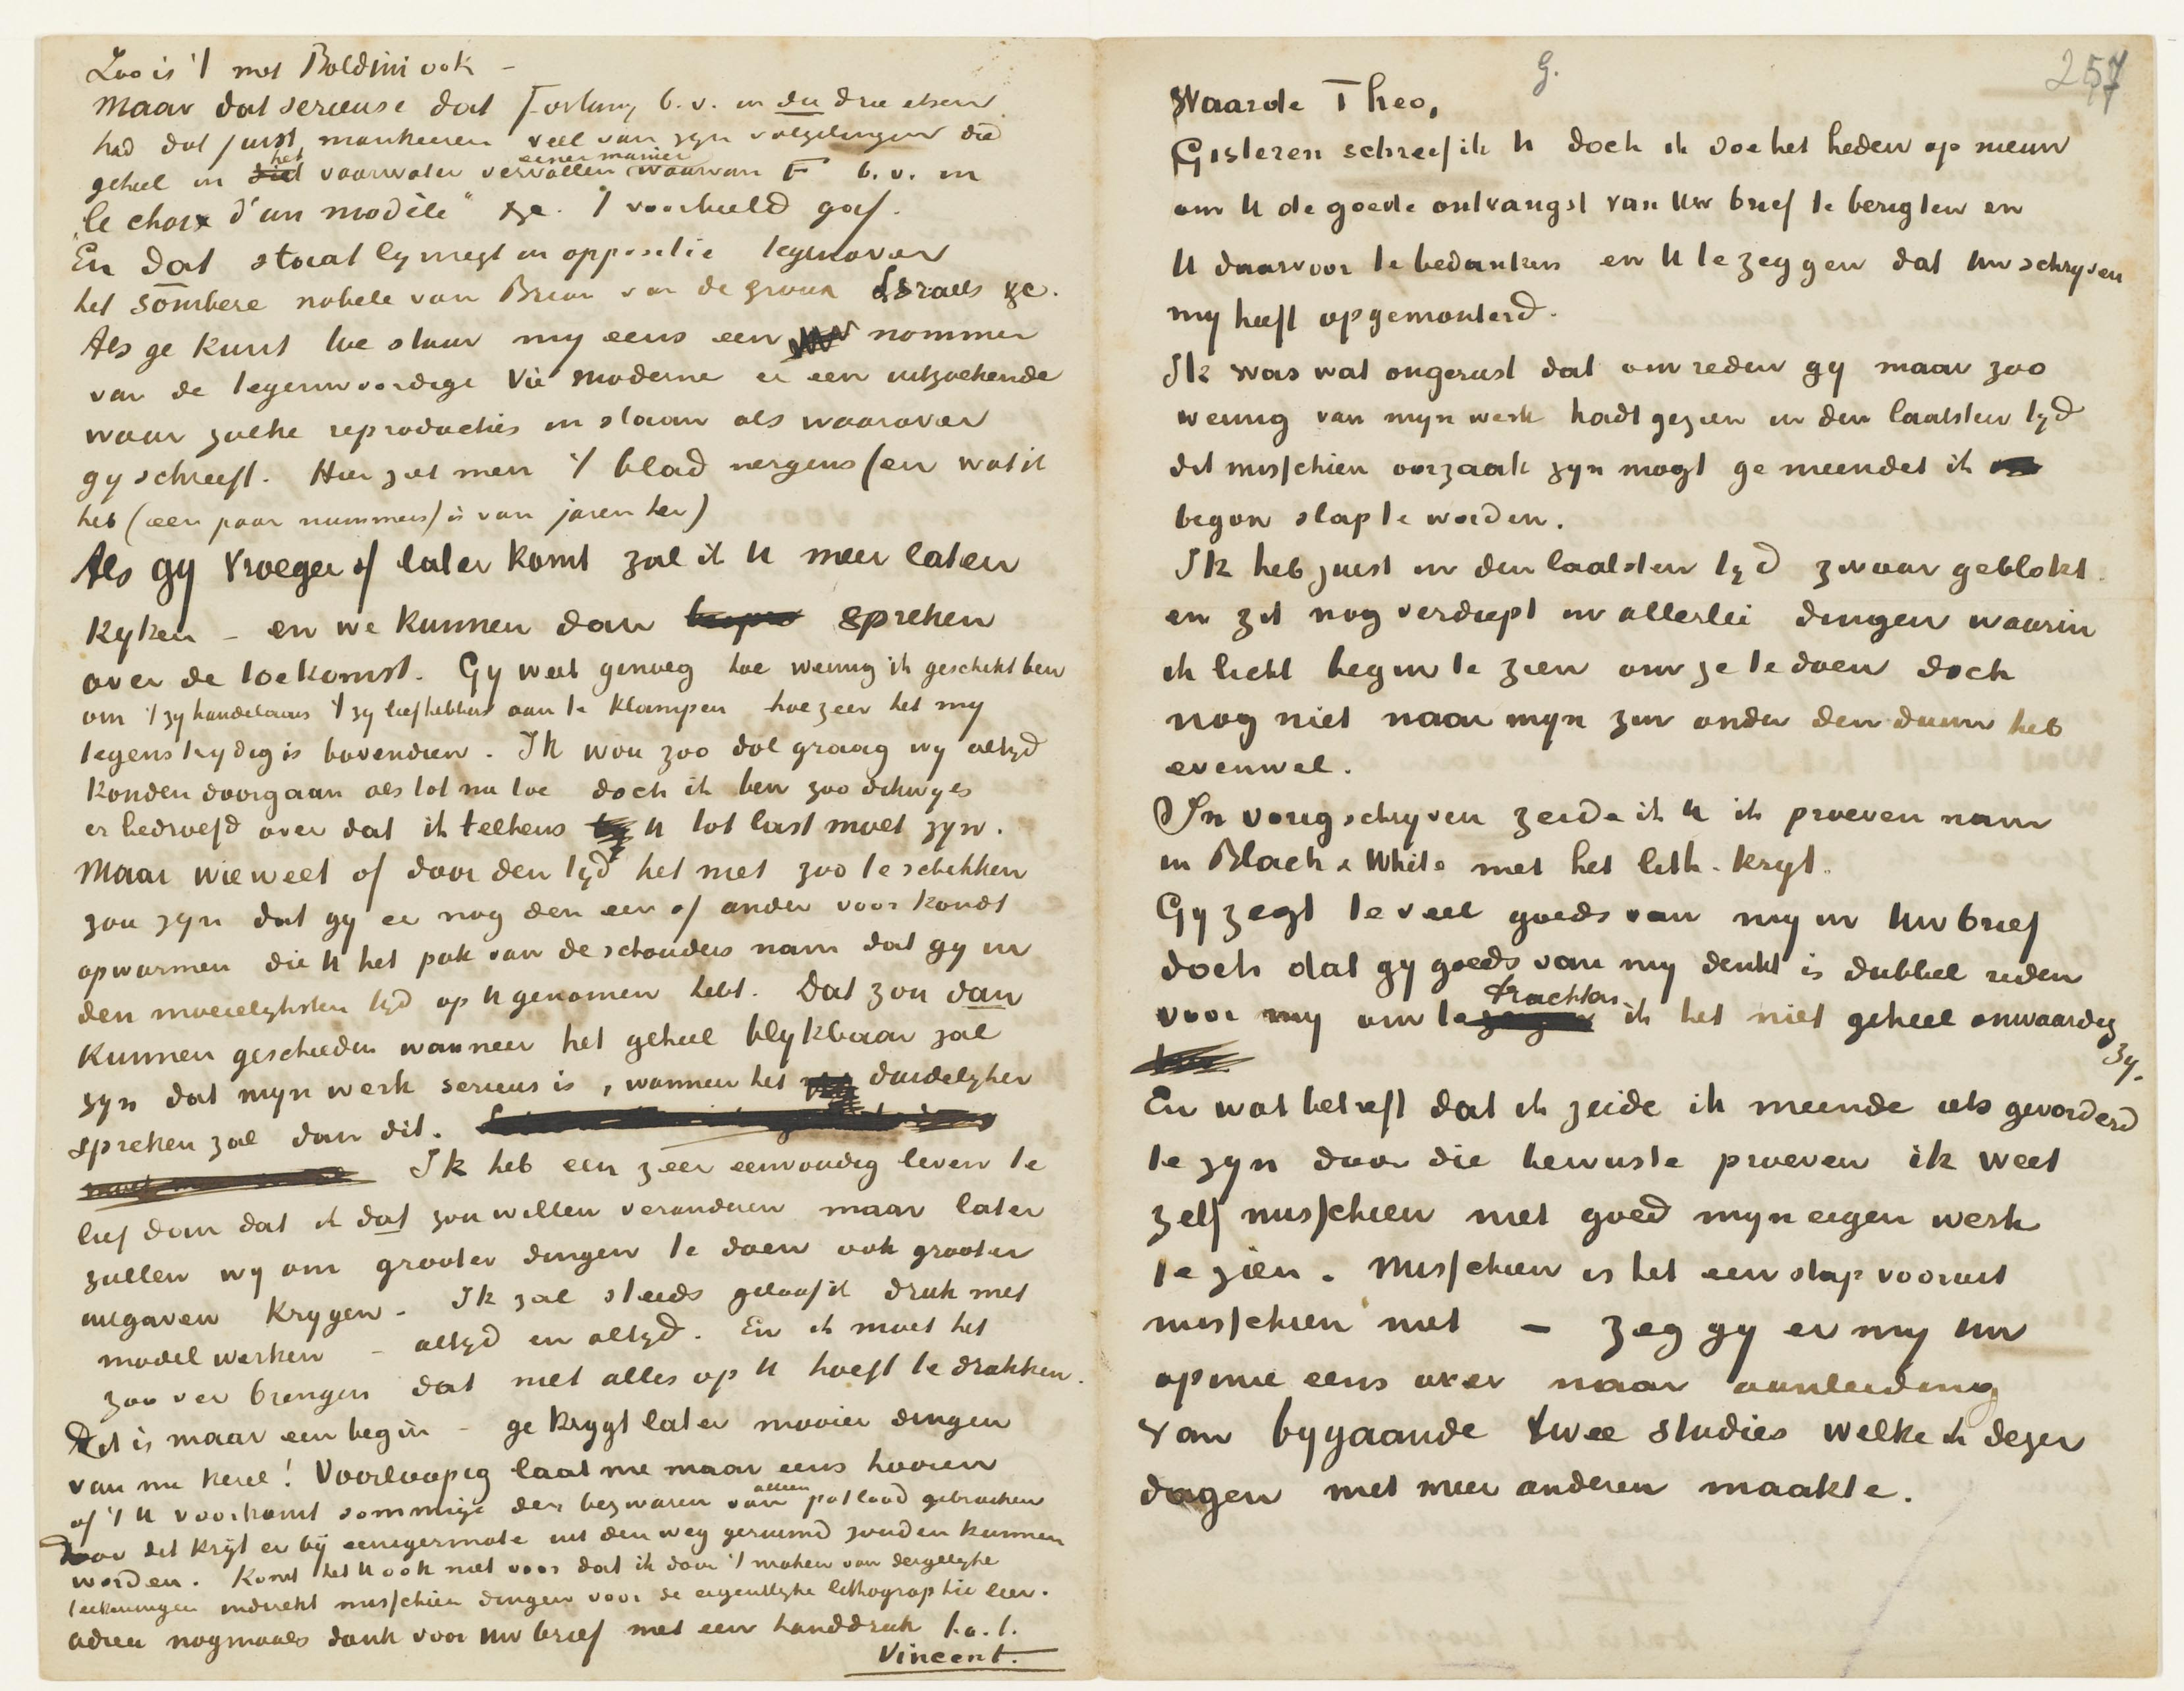 Zoo is 't met Boldini ook –
Maar dat serieuse dat Fortuny b.v. in die drie etsen
had dat juist mankeeren veel van zyn volgelingen die
geheel in het vaarwater vervallen eener manier waarvan F b.v. in
„le choix d'un modèle" &c. 't voorbeeld gaf.
En dat staat lynregt in oppositie tegenover
het sombere nobele van Brion van de groux Israels &c.
Als ge kunt toe stuur my eens een nommer
van de tegenwoordige Vie Moderne er een uitzoekende
waar zulke reproducties in staan als waarover
gy schreeft. Hier ziet men 't blad nergens (en wat ik
heb (een paar nummers) is van jaren her)
Als gy vroeger of later komt zal ik U meer laten
kyken – en we kunnen dan spreken
over de toekomst. Gy weet genoeg hoe weinig ik geschikt ben
om 't zy handelaars 't zy liefhebbers aan te klampen hoezeer het my
tegenstrydig is bovendien. Ik wou zoo dol graag wy altyd
konden doorgaan als tot nu toe doch ik ben zoo dikwyls
er bedroefd over dat ik telkens U tot last moet zyn.
Maar wie weet of door den tyd het niet zoo te schikken
zou zyn dat gy er nog den een of ander voor kondt
opwarmen die U het pak van de schouders nam dat gy in
den moeielyksten tyd op U genomen hebt. Dat zou dan
kunnen geschieden wanneer het geheel blykbaar zal
zyn dat myn werk serieus is, wanneer het duidelyker
spreken zal dan dit.
Ik heb een zeer eenvoudig leven te
lief dan dat ik dat zou willen veranderen maar later
zullen wy om grooter dingen te doen ook grooter
uitgaven krygen – Ik zal steeds geloof ik druk met
model werken – altyd en altyd. En ik moet het
zoo ver brengen dat niet alles op U hoeft te drukken.
Dit is maar een begin – ge krygt later mooier dingen
van me kerel! Voorloopig laat me maar eens hooren
of 't U voorkomt sommige der bezwaren van alleen potlood gebruiken
door dit kryt er by eenigermate uit den weg geruimd zouden kunnen
worden. Komt het U ook niet voor dat ik door 't maken van dergelyke
teekeningen indirekt misschien dingen voor de eigentlyke lithographie leer.
adieu nogmaals dank voor Uw brief met een handdruk t.a.t.
Vincent.
G.
257
Waarde Theo,
Gisteren schreef ik U doch ik doe het heden op nieuw
om U de goede ontvangst van Uw brief te berigten en
U daarvoor te bedanken en U te zeggen dat Uw schryven
my heeft opgemonterd.
Ik was wat ongerust dat om reden gy maar zoo
weinig van myn werk hadt gezien in den laatsten tyd
dit misschien oorzaak zyn mogt ge meendet ik
begon slap te worden.
Ik heb juist in den laatsten tyd zwaar geblokt.
en zit nog verdiept in allerlei dingen waarin
ik licht begin te zien om ze te doen doch
nog niet naar myn zin onder den duim heb
evenwel.
In vorig schryven zeide ik U ik proeven nam
in Black & White met het lith. kryt.
Gy zegt te veel goeds van my in Uw brief
doch dat gy goeds van my denkt is dubbel reden
voor my om te trachten ik het niet geheel onwaardig
zy.
En wat betreft dat ik zeide ik meende iets gevorderd
te zyn door die bewuste proeven ik weet
zelf misschien niet goed myn eigen werk
te zien. Misschien is het een stap vooruit
misschien niet – zeg gy er my Uw
opinie eens over naar aanleiding
van bygaande twee studies welke ik dezer
dagen met meer anderen maakte.